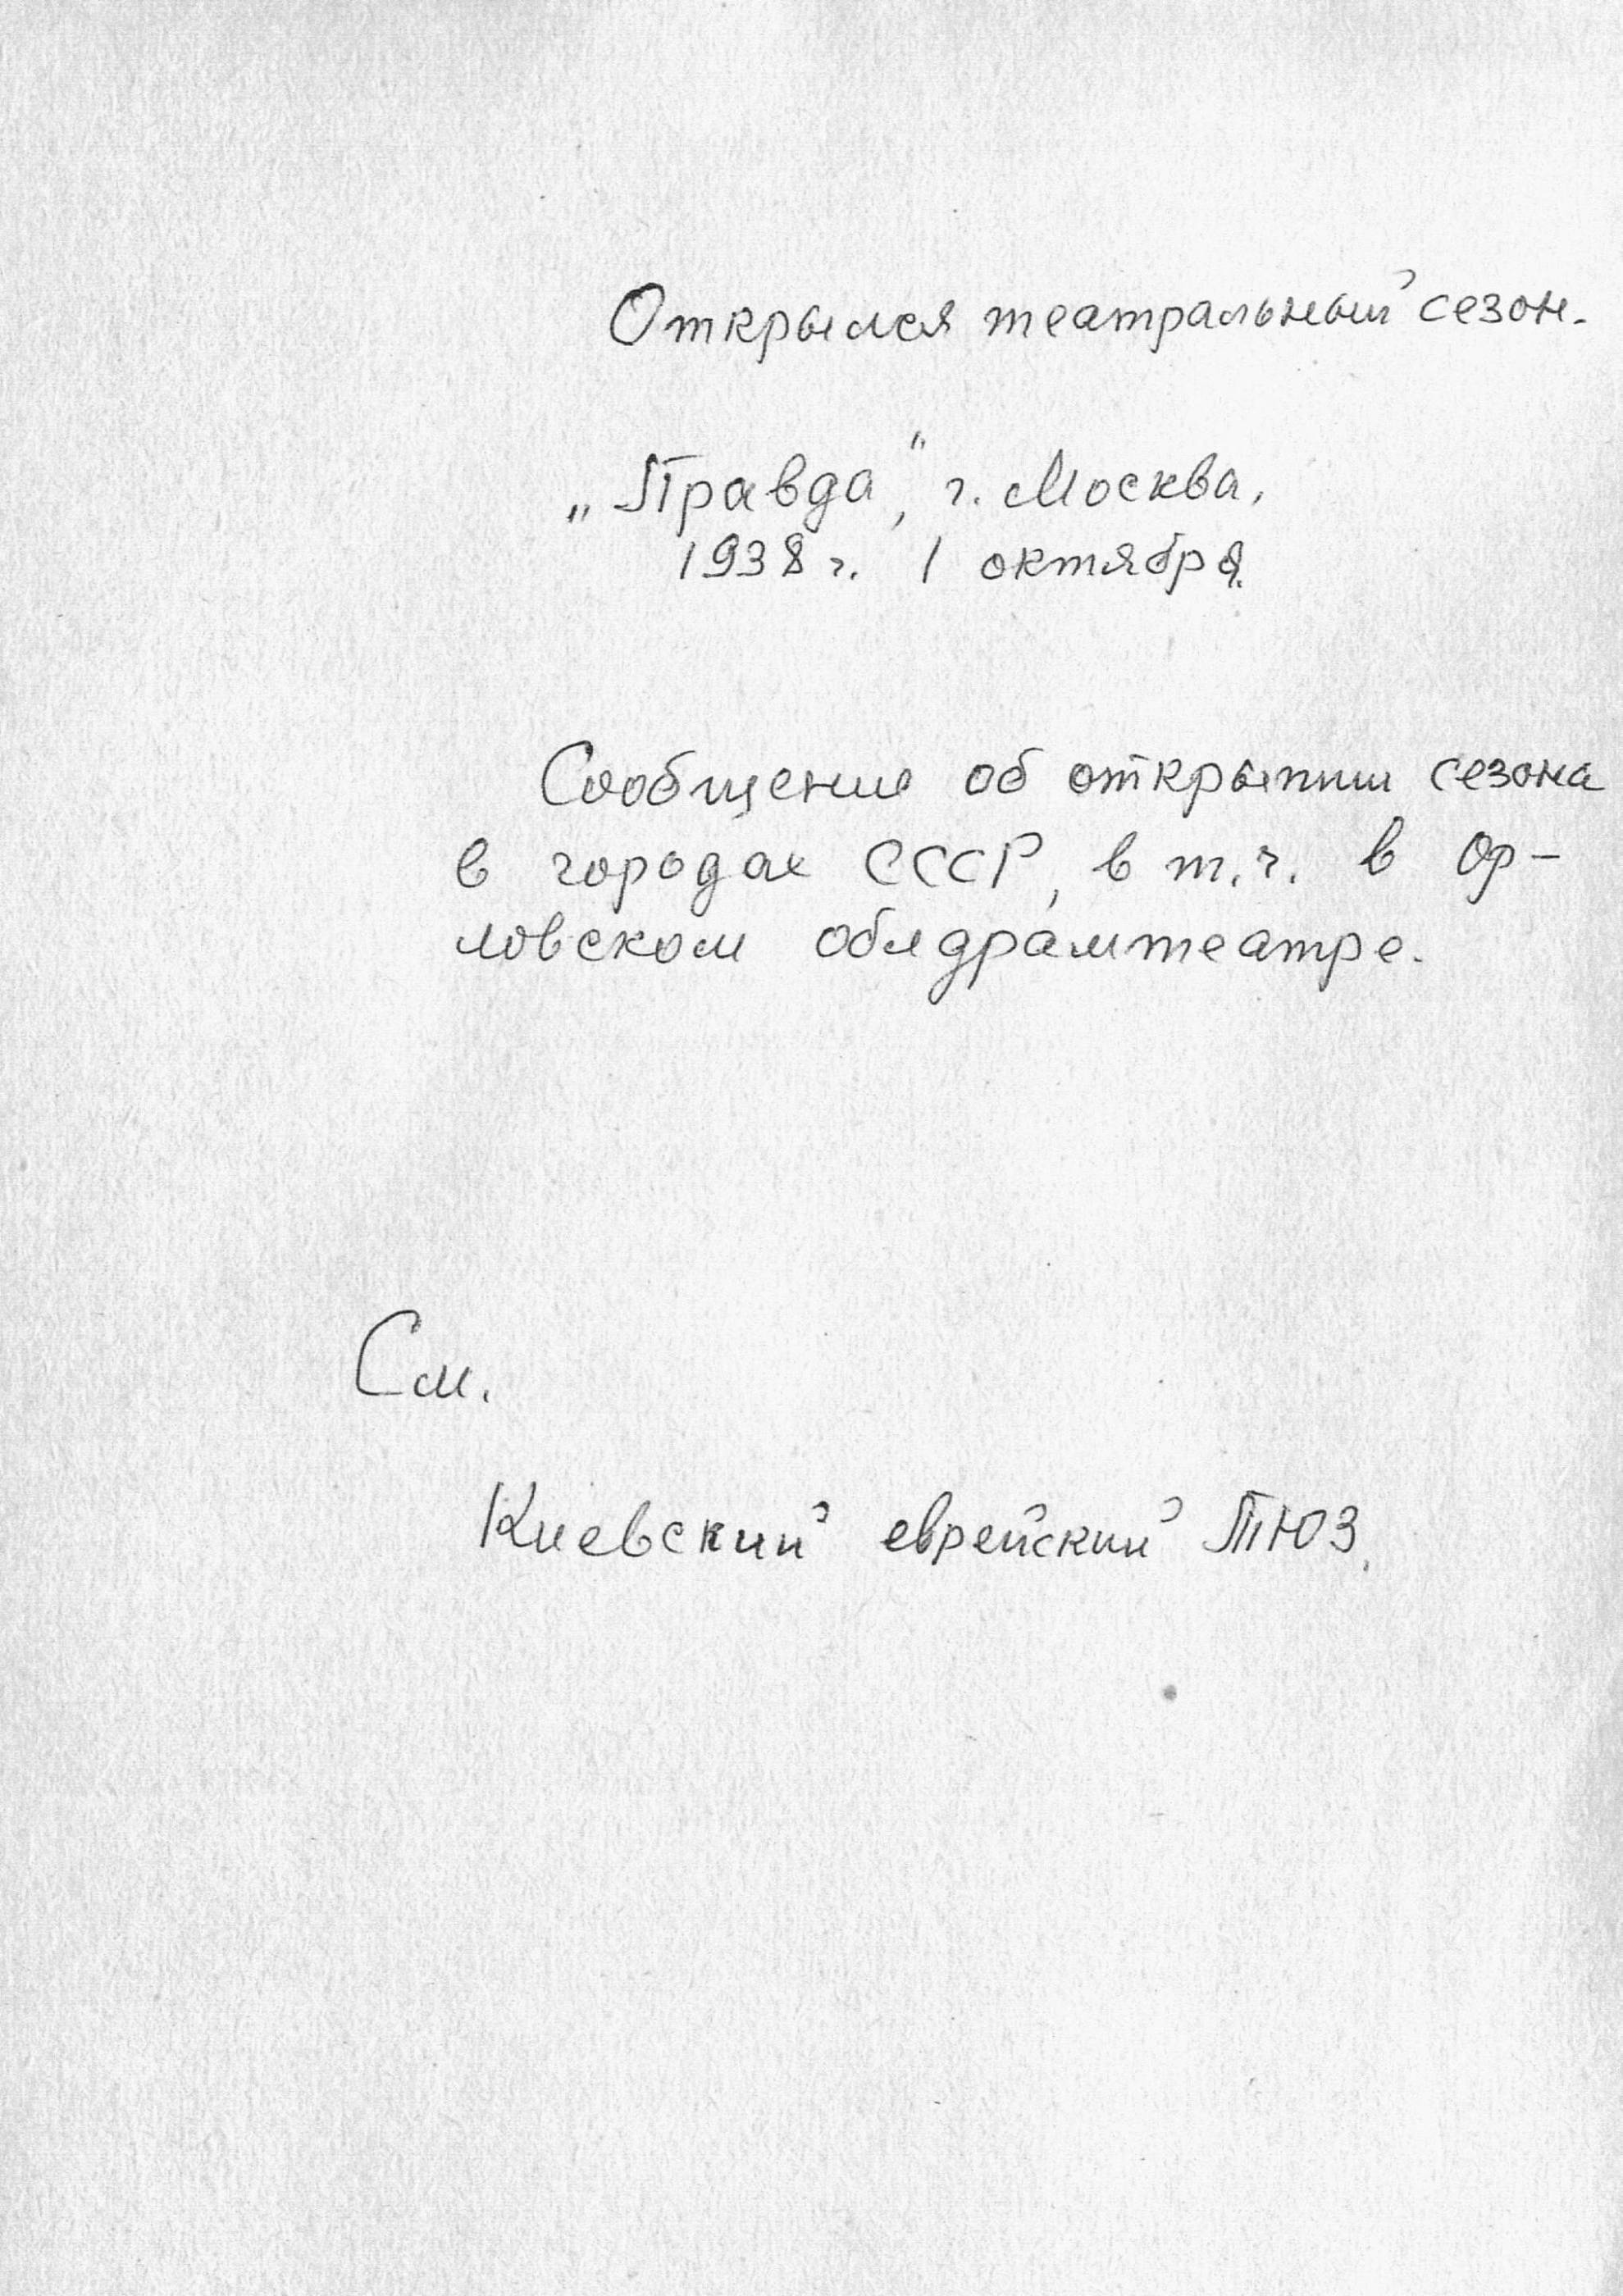 Открылся театральный сезон.
„Правда", г. Москва,
1938 г. 1 октября.
Сообщение об открытии сезона
в городах СССР, в т.ч. в Ор-
ловском облдрамтеатре.
См.
Киевский еврейский ТЮЗ.